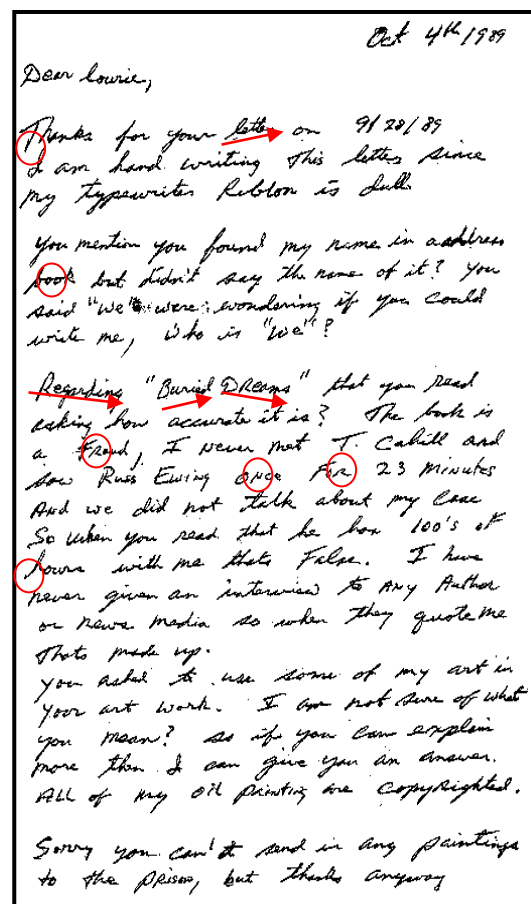 Oct 4th 1989
Dear Lowrie,
Thanks for your letter on 9/28/89
I am hand writing this letter since
my typewriter Ribbon is dull
you mention you found my name in address
book but didn't say the name of it? you
said "we" were wondering if you could
write me, who is "we"?
Regarding "Buried Dreams" that you read
asking how accurate it is? The book is
a Fraud, I never met T. Cahill and
saw Russ Ewing once For 23 minutes
And we did not talk about my case
So when you read that he has 100's of
hours with me thats False. I have
never given an interview to Any Author
or news media so when they quote me
thats made up.
you asked to use some of my art in
your art work. I am not sure of what
you mean? so if you can explain
more then I can give you an answer.
All of my oil painting are copyrighted.
Sorry you can't send in any paintings
to the prison, but thanks anyway